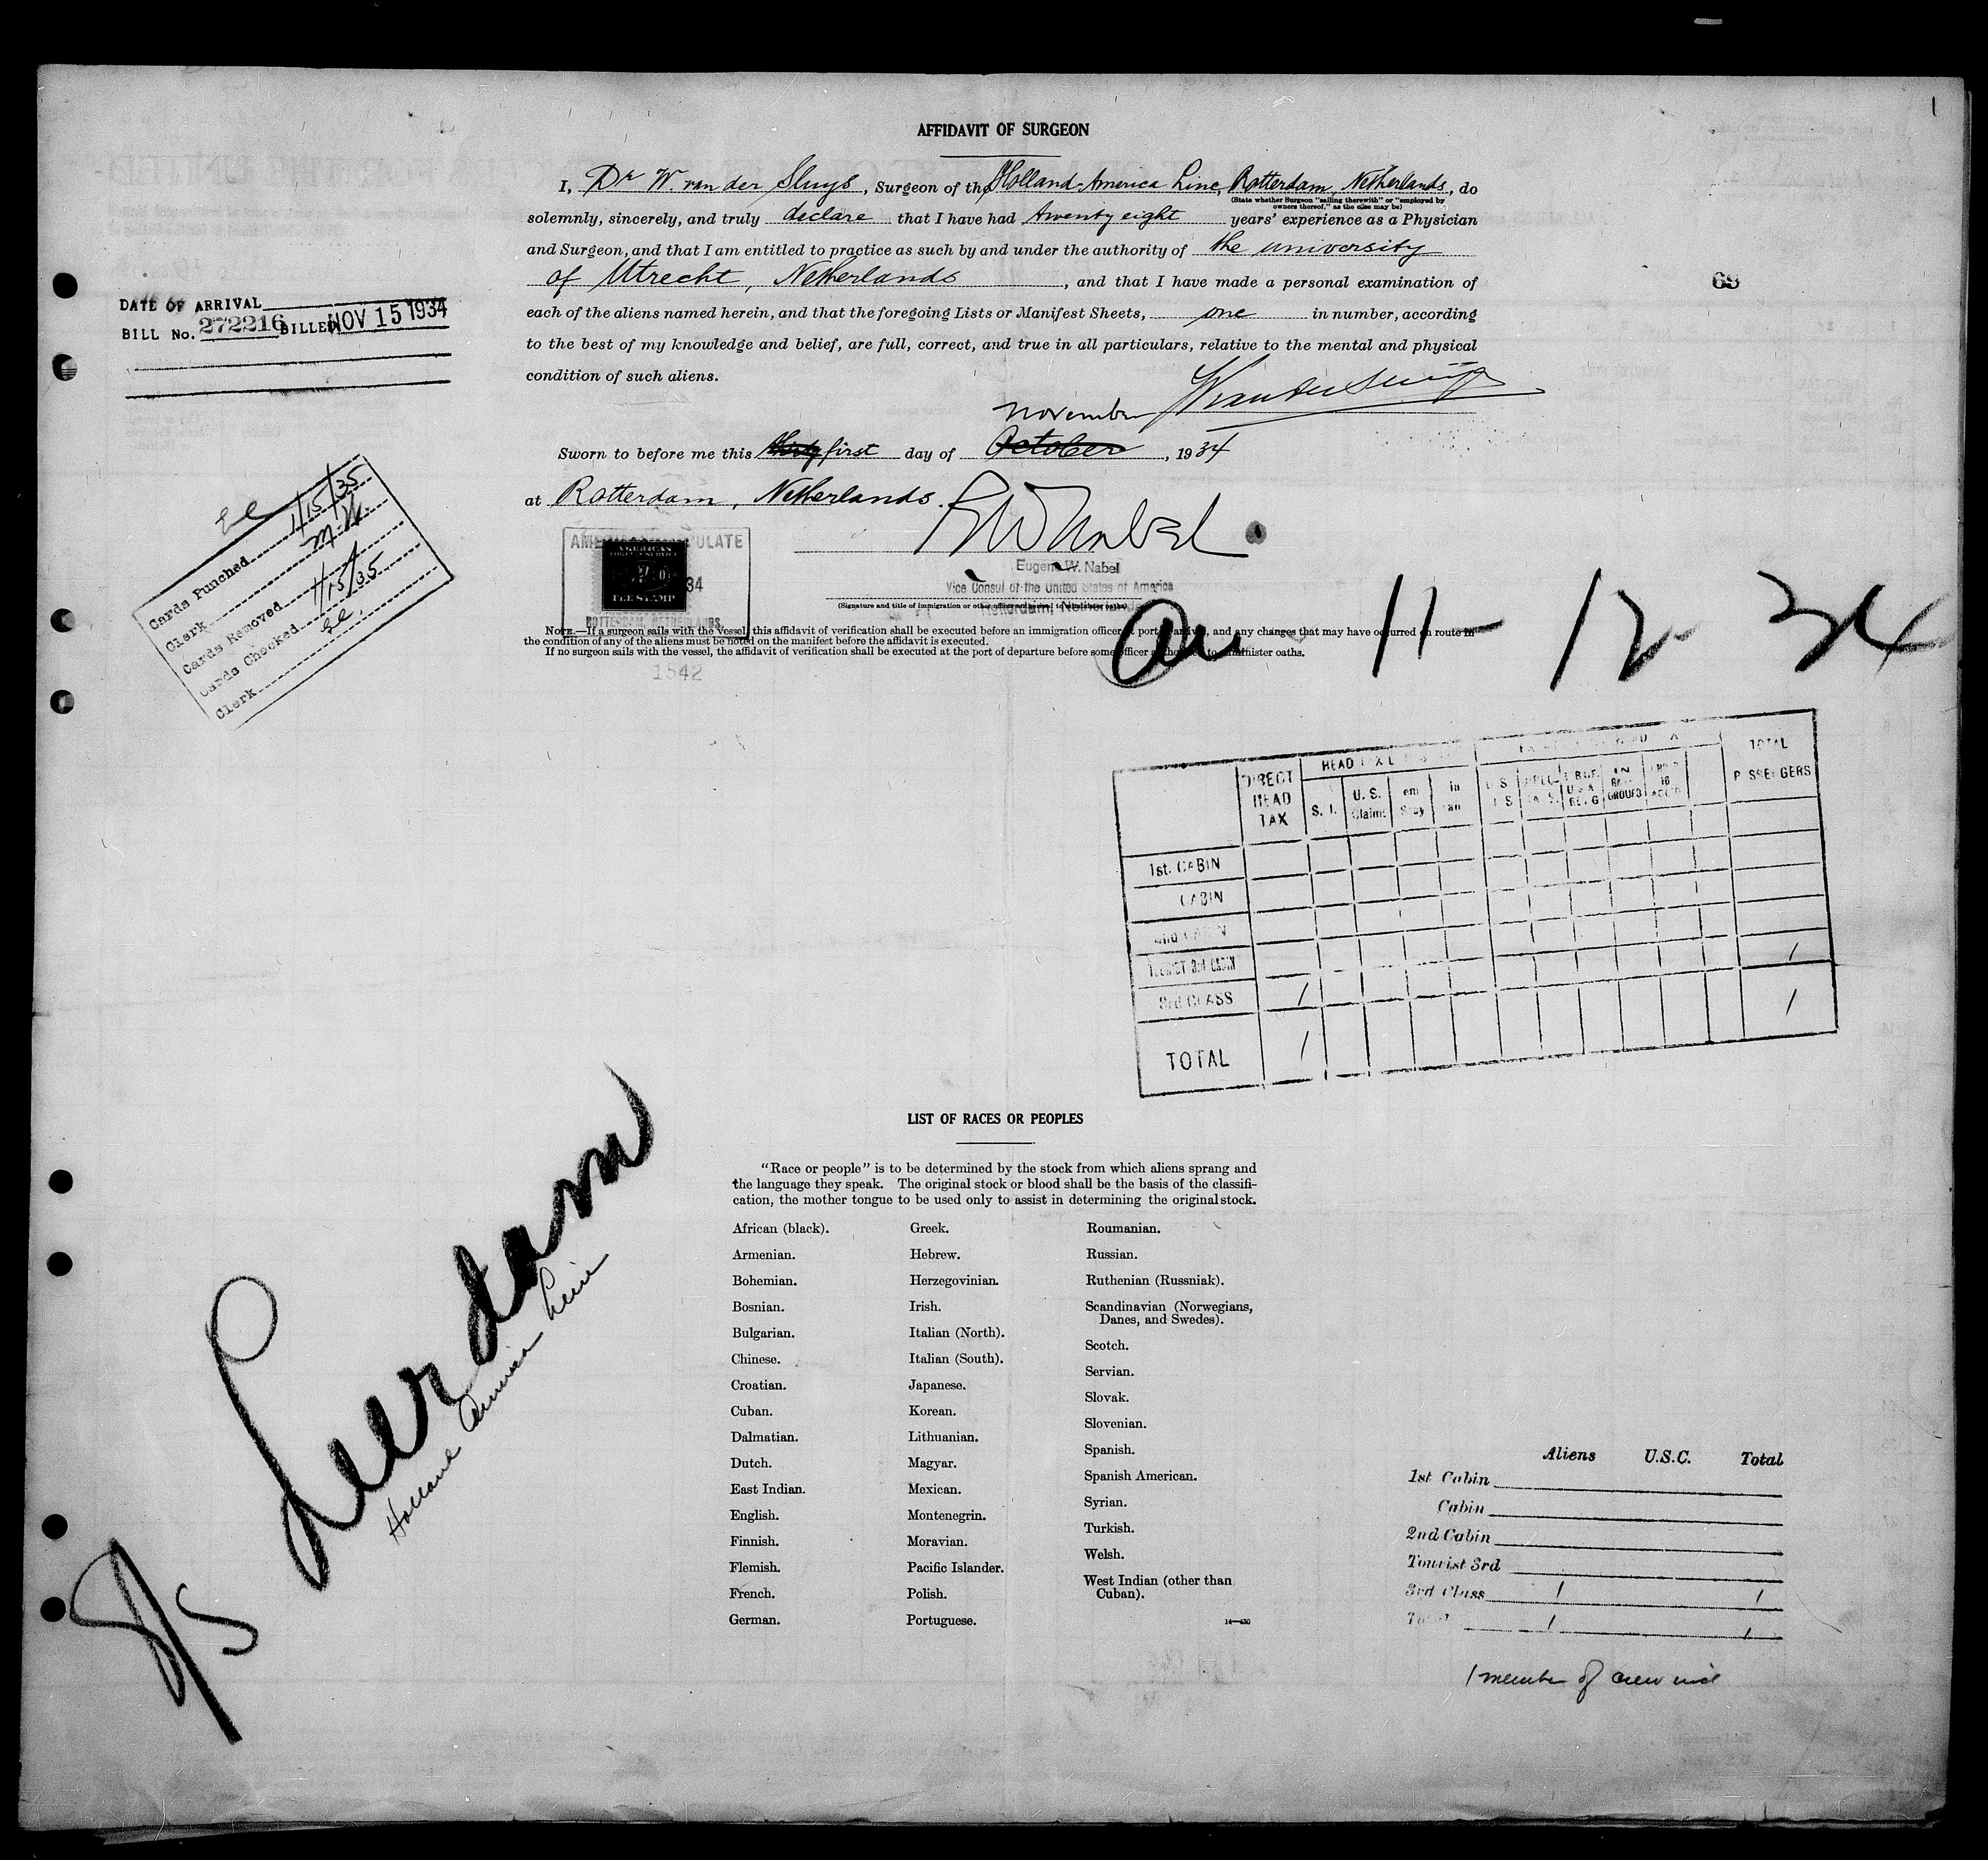 AFFIDAVIT OF SURGEON
I, Dr W. van der Sluys, Surgeon of the Holland-America Line, Rotterdam, Netherlands, do
(State whether Surgeon "sailing therewith" or "employed by
owners thereof," as the case may be)
solemnly, sincerely, and truly declare that I have had twenty eight years' experience as a Physician
and Surgeon, and that I am entitled to practice as such by and under the authority of the university
of Utrecht, Netherlands, and that I have made a personal examination of
each of the aliens named herein, and that the foregoing Lists or Manifest Sheets, one in number, according
to the best of my knowledge and belief, are full, correct, and true in all particulars, relative to the mental and physical
condition of such aliens.
november
Sworn to before me this thirty first day of October, 1934
at Rotterdam, Netherlands.
69
DATE OF ARRIVAL
BILL No. 272216 BILLED NOV 15 1934
Cards Punched 1/15/35
Clerk M.W.
Cards Removed
Cards Checked 1/15/35
Clerk
AMERICAN
FEE STAMP
ROTTERDAM, NETHERLANDS.
1542
Eugene W. Nabel
Vice Consul of the United States of America
Rotterdam, Netherlands
NOTE.—If a surgeon sails with the vessel, this affidavit of verification shall be executed before an immigration officer at port of arrival, and any changes that may have occurred en route in
the condition of any of the aliens must be noted on the manifest before the affidavit is executed.
If no surgeon sails with the vessel, the affidavit of verification shall be executed at the port of departure before some officer authorized to administer oaths.
11 - 12 - 34
DIRECT HEAD TAX
S. I.
U. S. Claims
TOTAL PASSENGERS
1st. CABIN
CABIN
2nd CABIN
TOURIST 3rd CABIN 1
3rd CLASS 1 1
TOTAL 1
LIST OF RACES OR PEOPLES
"Race or people" is to be determined by the stock from which aliens sprang and
the language they speak. The original stock or blood shall be the basis of the classifi-
cation, the mother tongue to be used only to assist in determining the original stock.
African (black).
Armenian.
Bohemian.
Bosnian.
Bulgarian.
Chinese.
Croatian.
Cuban.
Dalmatian.
Dutch.
East Indian.
English.
Finnish.
Flemish.
French.
German.
Greek.
Hebrew.
Herzegovinian.
Irish.
Italian (North).
Italian (South).
Japanese.
Korean.
Lithuanian.
Magyar.
Mexican.
Montenegrin.
Moravian.
Pacific Islander.
Polish.
Portuguese.
Roumanian.
Russian.
Ruthenian (Russniak).
Scandinavian (Norwegians,
Danes, and Swedes).
Scotch.
Servian.
Slovak.
Slovenian.
Spanish.
Spanish American.
Syrian.
Turkish.
Welsh.
West Indian (other than
Cuban).
14—430
S/S Leerdam
Holland America Line
Aliens U.S.C. Total
1st Cabin
Cabin
2nd Cabin
Tourist 3rd
3rd Class 1 1
Total 1 1
1 member of crew